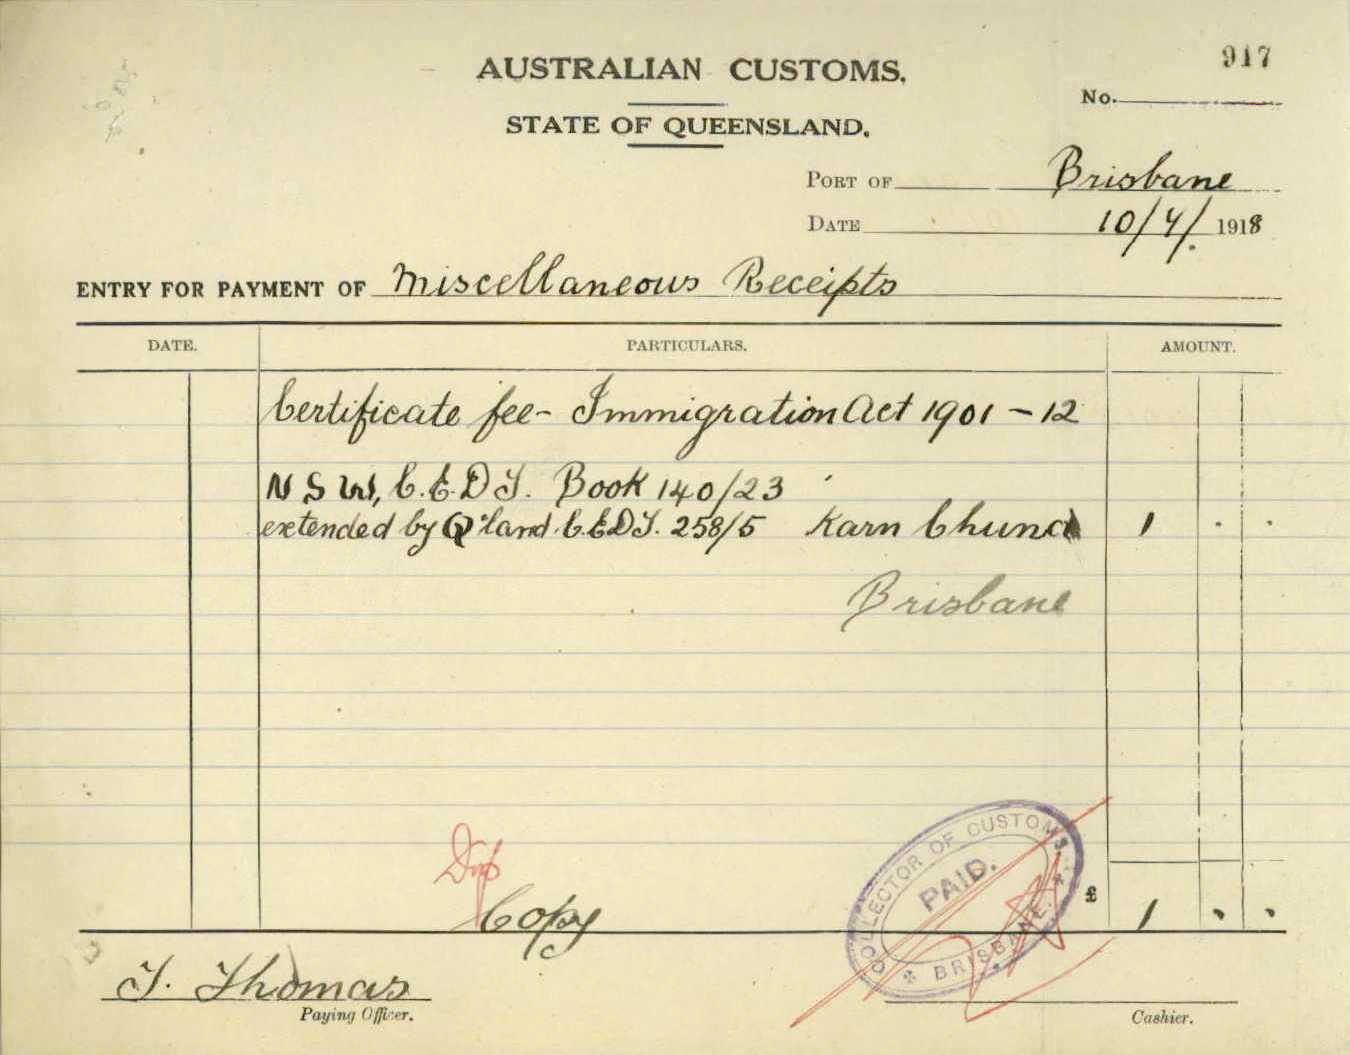 917
AUSTRALIAN CUSTOMS.
No.
STATE OF QUEENSLAND.
PORT OF Brisbane
DATE 10/4/. 1918
ENTRY FOR PAYMENT OF Miscellaneous Receipts
DATE. PARTICULARS. AMOUNT.
Certificate fee - Immigration Act 1901 - 12
N S W, C.E.D.T. Book 140/23
extended by Q'land C.E.D.T. 258/5 Karn Chund 1 . .
Brisbane
COLLECTOR OF CUSTOMS.
PAID.
* BRISBANE. *
Dup
Copy
£ 1 . .
T. Thomas
Paying Officer.
Cashier.